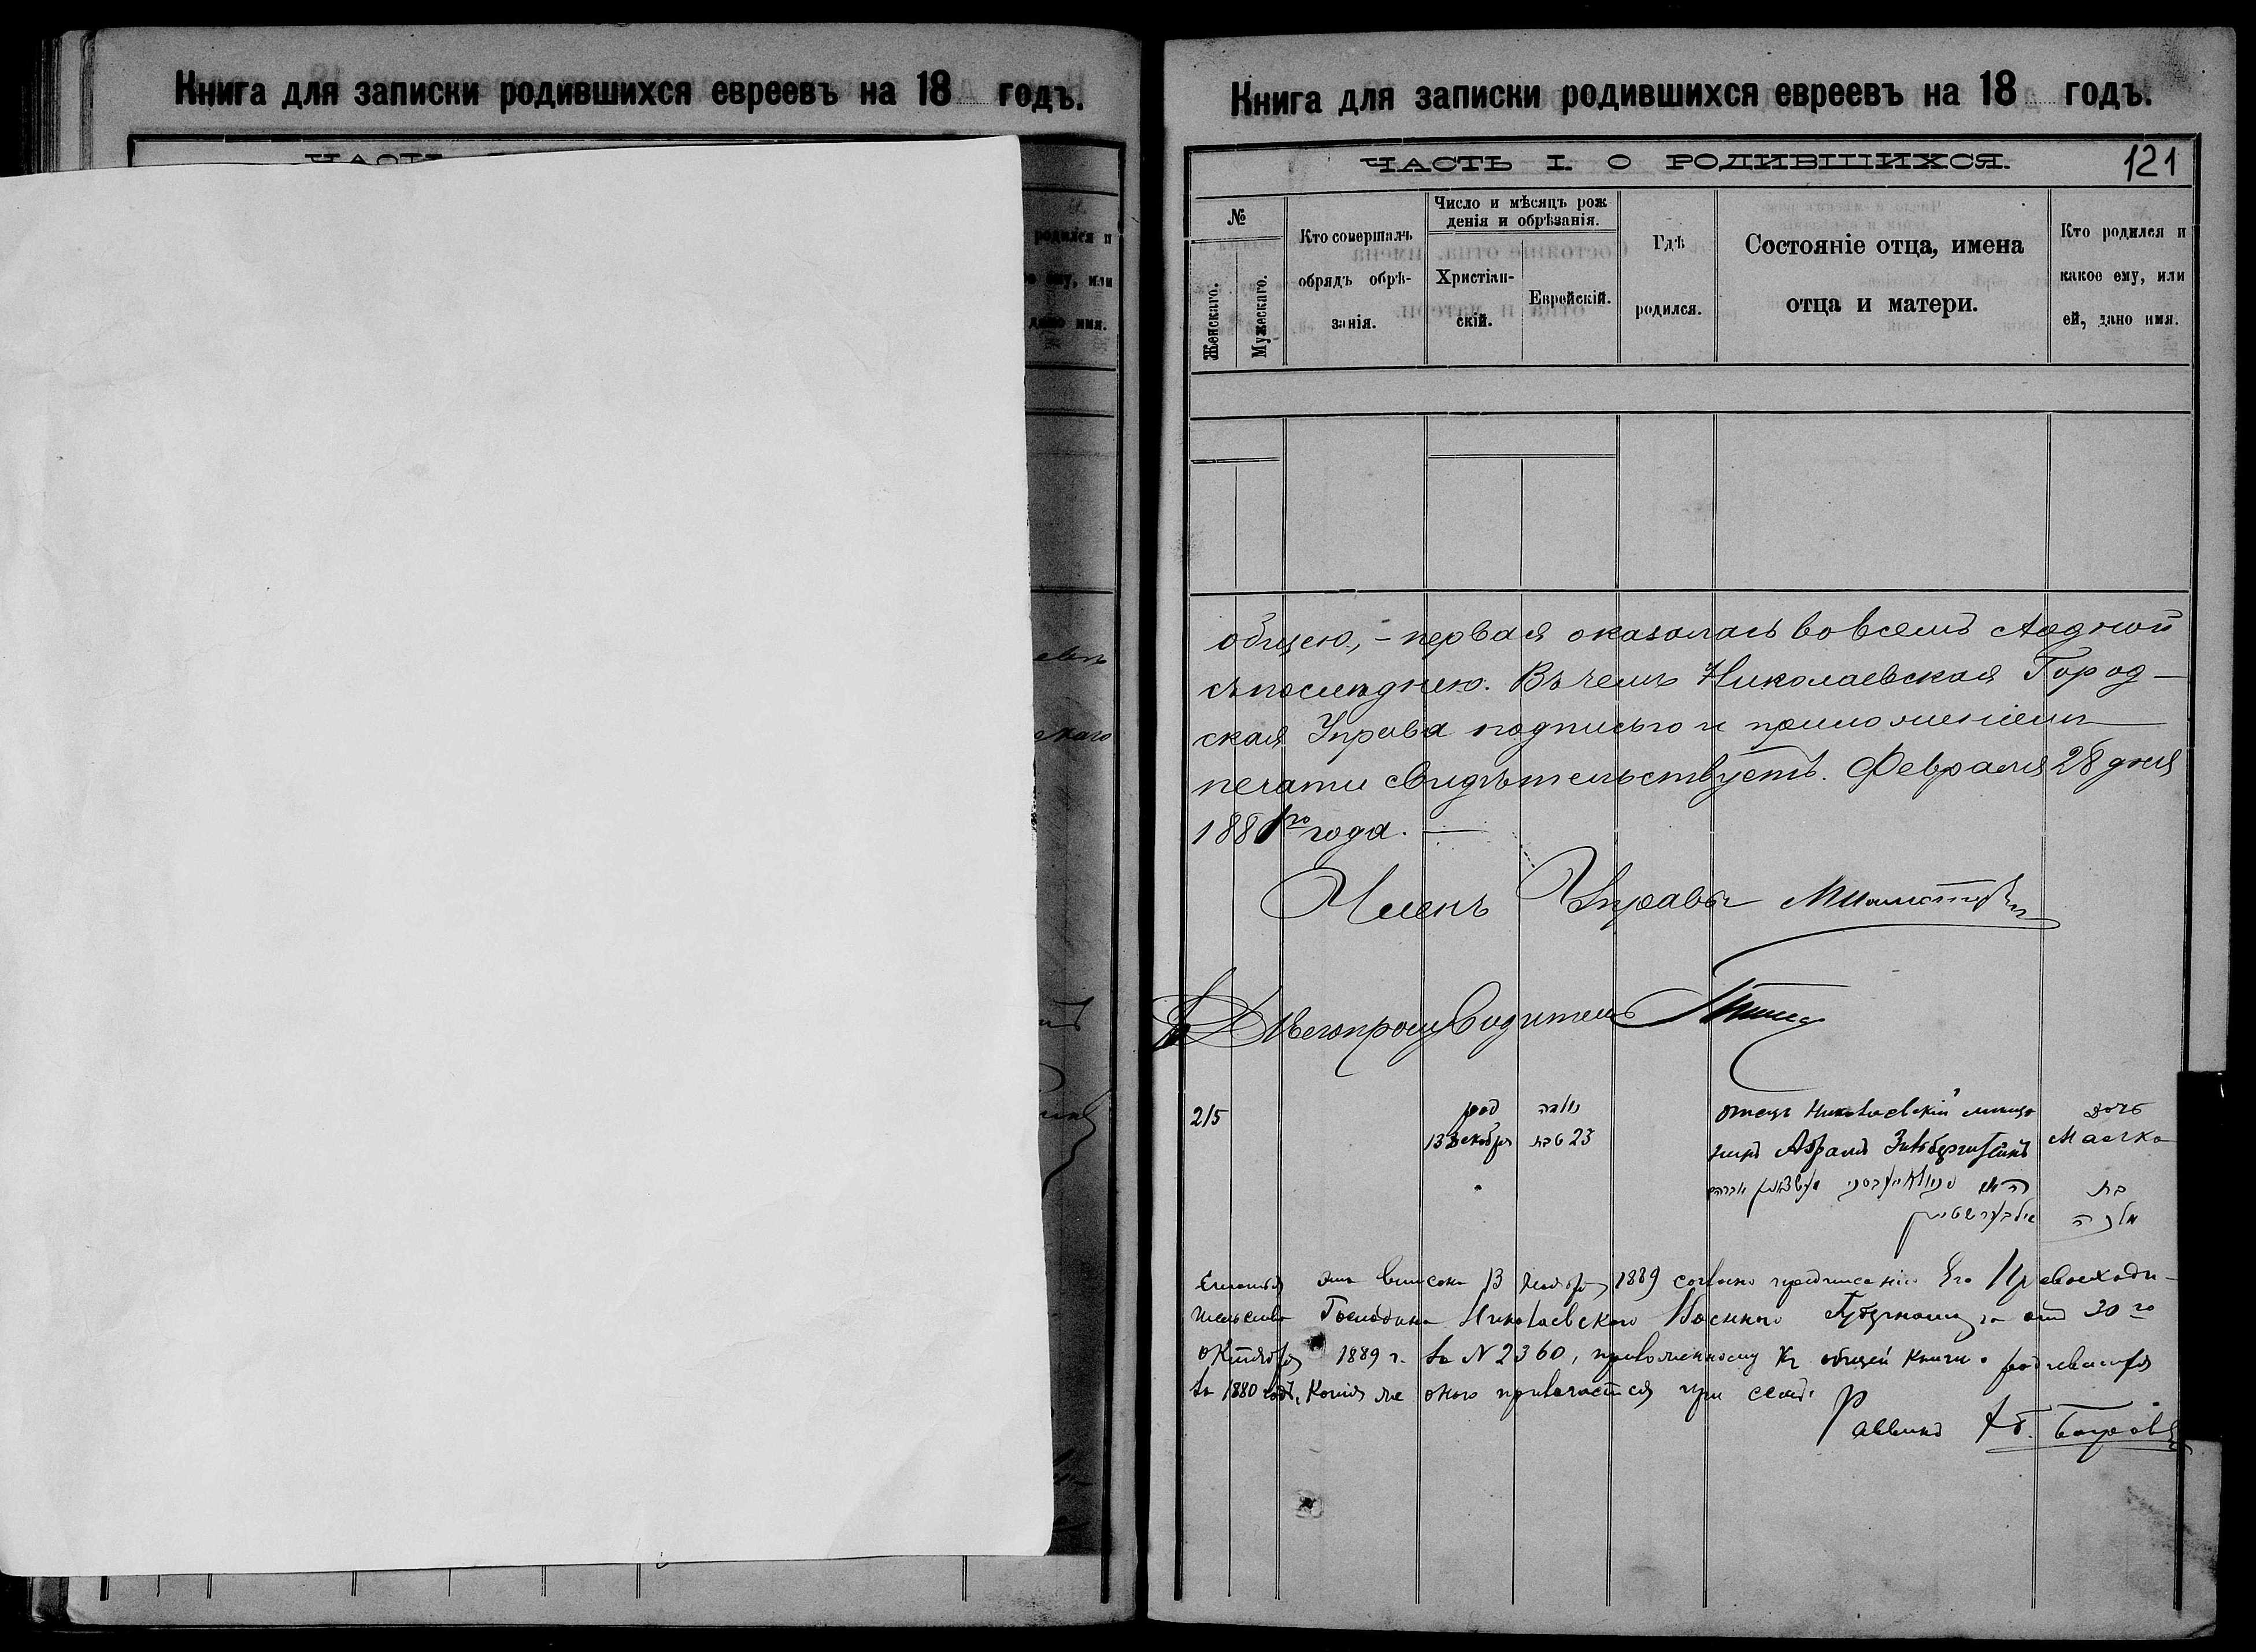 Книга для записки родившихся евреевъ на 18 годъ.
родился и
ему, или
дано имя.
Книга для записки родившихся евреевъ на 18 годъ.
ЧАСТЬ I. О РОДИВШИХСЯ.
121
№
Женскаго.
Мужескаго.
Кто совершалъ
обрядъ обрѣ-
занія.
Число и мѣсяцъ рож
денія и обрѣзанія.
Христіан-
скій.
Еврейскій.
Гдѣ
родился.
Состояніе отца, имена
отца и матери.
Кто родился и
какое ему, или
ей, дано имя.
общею, – первая оказалась во всемъ
съ последнею. Въ чемъ Николаевская Город-
ская Управа подписью и приложеніемъ
печати свидѣтельствуетъ. Февраля 28 дня
1881го года. —
Членъ Управы
Дѣлопроизводитель
215
род
13 Декабря
נולדה
23 טבת
отецъ Николаевскій мѣща
нинъ Абрамъ
дочь
Малка
אברהם
בת
מלכה
эта вписана 13 1889 согласно предписанію Его Превосходи-
тельства Господина Николаевского Военного Губернатора отъ 20го
Октября 1889 г. за N 2360, приложенному къ общей книги о родившихся
за 1880 годъ, Копія же оного прилагается при семъ.
Раввинъ